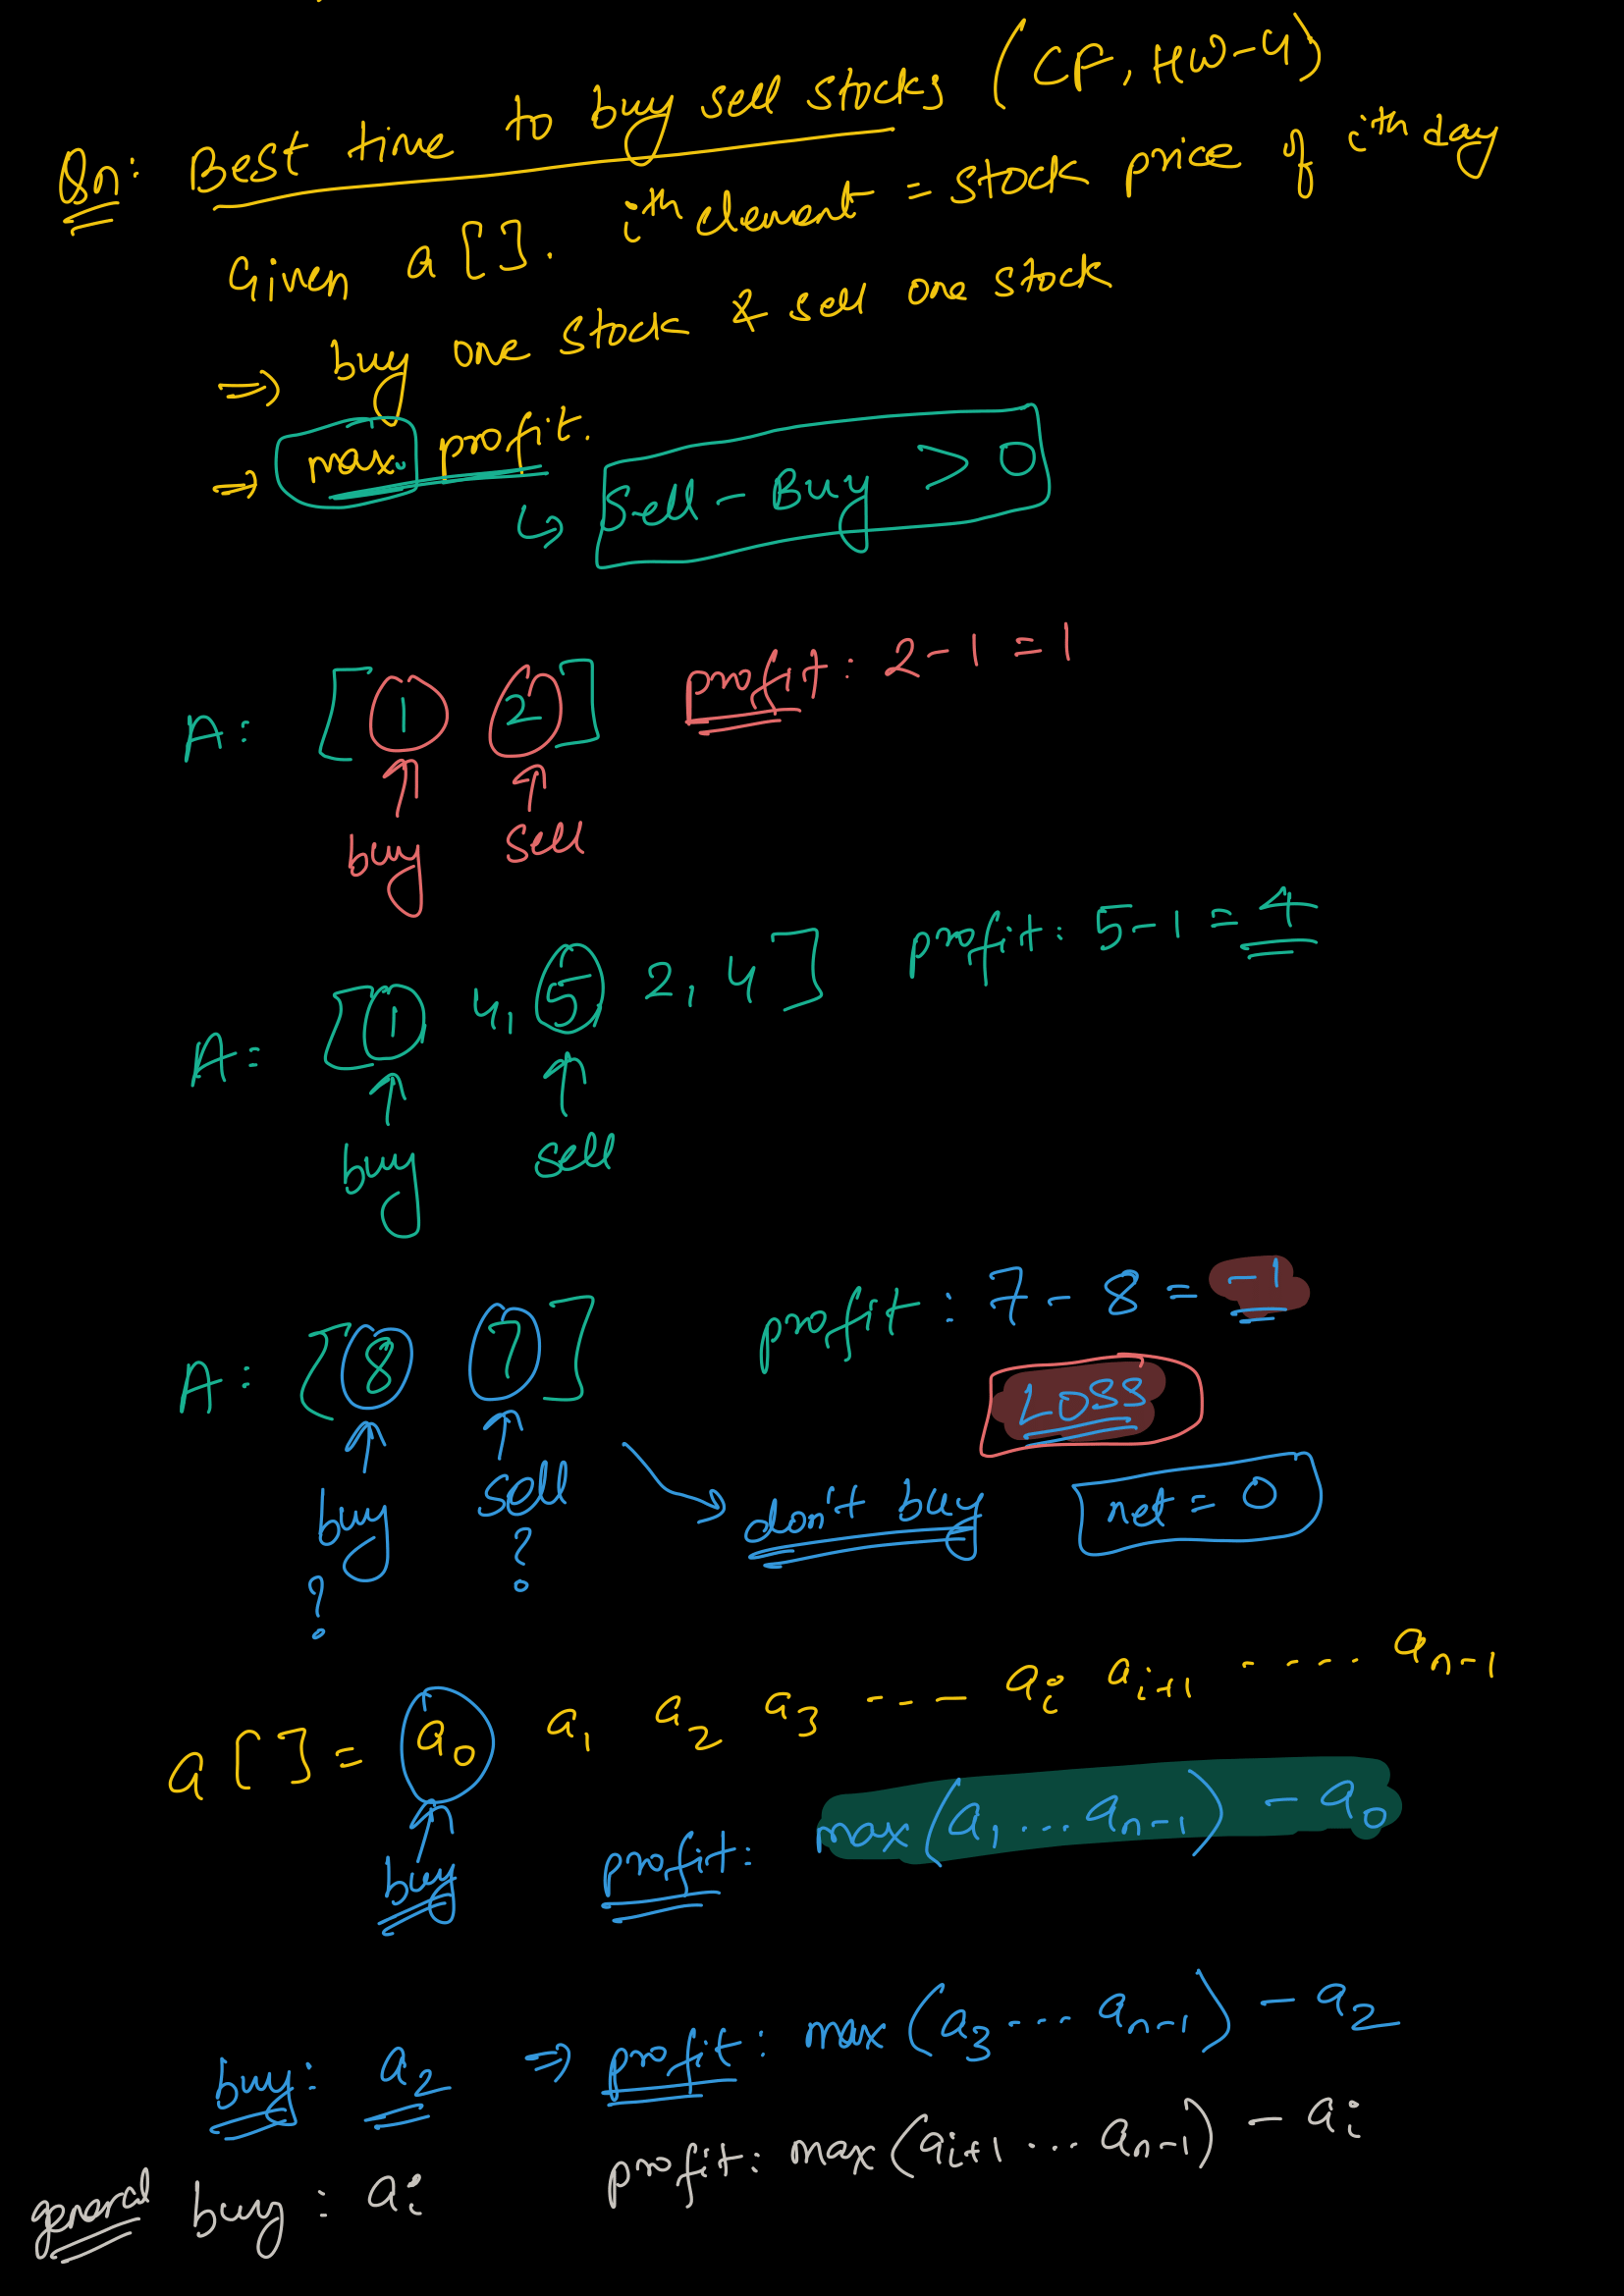 Qn: Best time to buy sell stocks (CF, HW-4)
Given a[]. ith element = stock price of ith day
⇒ buy one stock & sell one stock
⇒ max. profit.
↳ Sell - Buy > 0
A: [1 2] profit: 2-1 = 1
buy sell
A= [1 4, 5 2, 4] profit: 5-1 = 4
buy sell
A: [8 7] profit: 7 - 8 = -1
LOSS
buy sell don't buy net = 0
? ?
a[] = a0 a1 a2 a3 ---- ai ai+1 ----- an-1
buy profit: max(a1 ... an-1) - a0
buy: a2 ⇒ profit: max(a3 ... an-1) - a2
general buy: ai profit: max(ai+1 ... an-1) - ai